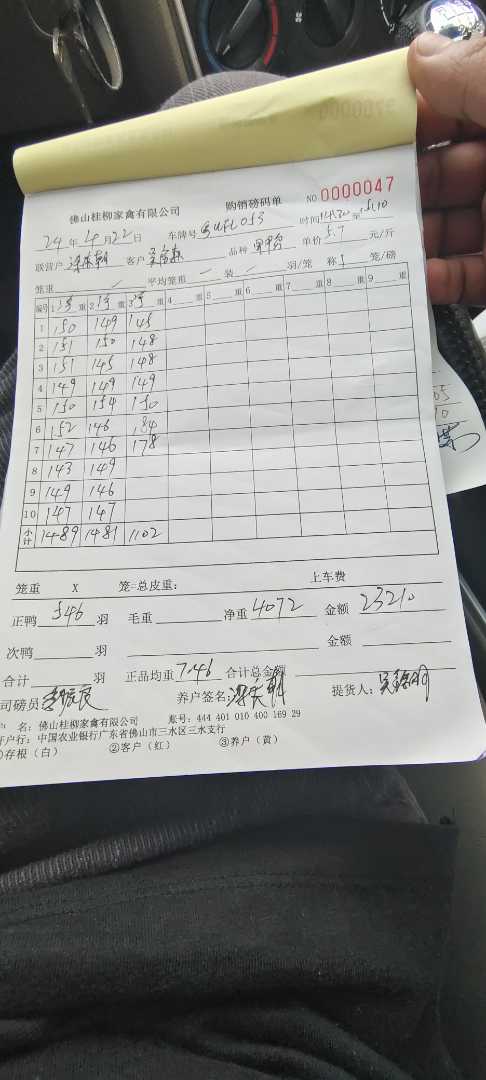 佛山桂柳家禽有限公司 购销磅码单 NO 0000047
24 年 4 月 22 日 车牌号 时间 14:30 至 15:10
联营户 客户 品种 单价 5.7 元/斤
笼重 平均笼重 一 装 一 羽/笼 称 5 笼/磅
编号 1 3号 重 2 1号 重 3 2号 重 4 重 5 重 6 重 7 重 8 重 9 重
1 150 149 145
2 151 150 148
3 151 145 148
4 149 149 149
5 150 154 150
6 152 146 184
7 147 146 178
8 143 149
9 149 146
10 147 147
小计 1489 1481 1102
笼重 X 笼=总皮重: 上车费
正鸭 546 羽 毛重 净重 4072 金额 23210
次鸭 羽 金额
合计 羽 正品均重 7.46 合计总金额
司磅员 养户签名: 提货人:
户 名: 佛山桂柳家禽有限公司 账号: 444 401 010 400 169 29
开户行: 中国农业银行广东省佛山市三水区三水支行
①存根（白） ②客户（红） ③养户（黄）